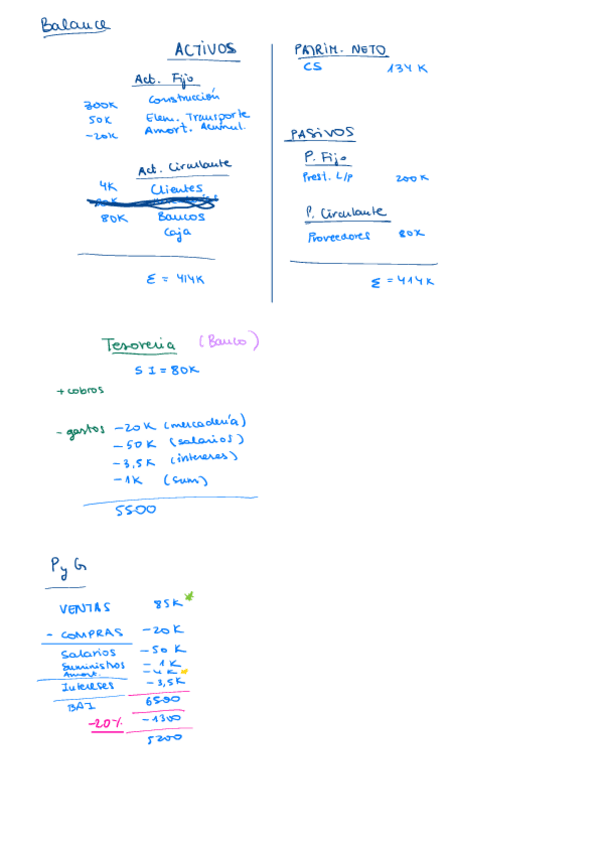 Balance
ACTIVOS
Act. Fijo
300K Construcción
50K Elem. Transporte
-20K Amort. Acumul.
Act. Circulante
4K Clientes
80K Bancos
Caja
Σ = 414K
PATRIM. NETO
CS 134K
PASIVOS
P. Fijo
Prest. L/p 200K
P. Circulante
Proveedores 80K
Σ = 414K
Tesoreria (Banco)
SI = 80K
+ cobros
- gastos -20K (mercadería)
-50K (salarios)
-3,5K (intereses)
-1K (sum)
5500
PyG
VENTAS 85K*
- COMPRAS -20K
Salarios -50K
Suministros -1K
Amort. -4K
Intereses -3,5K
BAI 6500
-20% -1300
5200